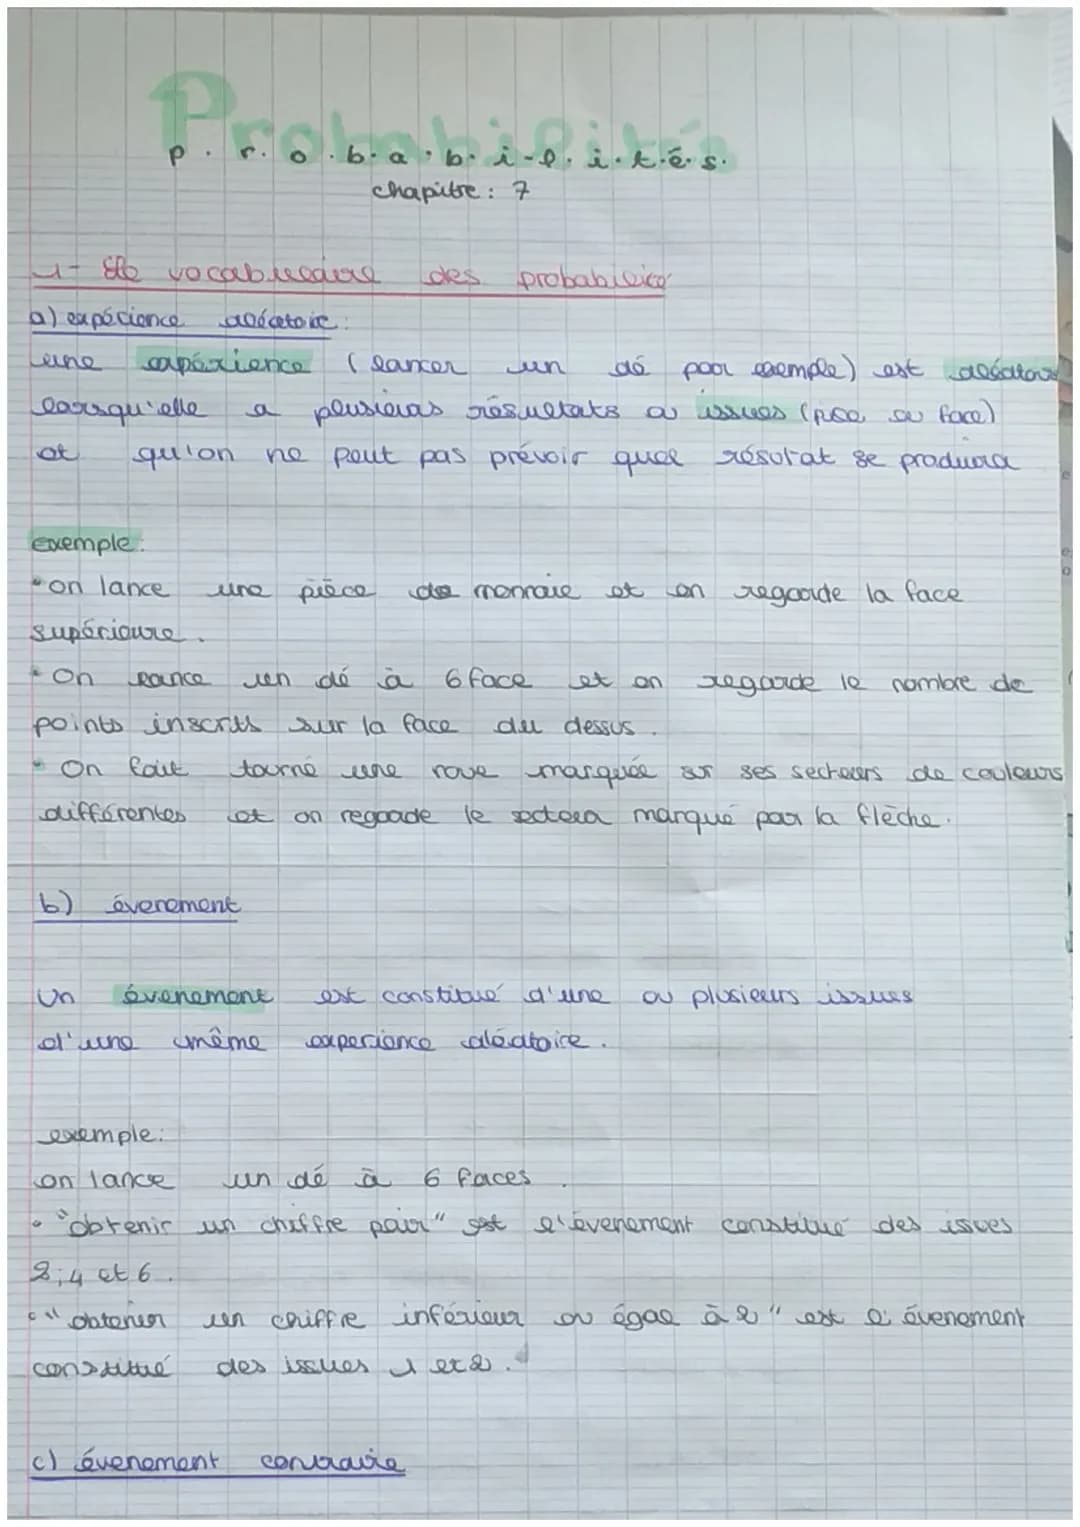 Probabilités
p.r.o.b.a.b.i.l.i.t.é.s.
chapitre : 7
1- le vocabulaire des probabilité
a) expérience aléatoire :
une expérience (lancer un dé pour exemple) est aléatoire
lorsqu'elle a plusieurs résultats ou issues (pile ou face)
et qu'on ne peut pas prévoir quel résultat se produira
exemple :
• on lance une pièce de monnaie et on regarde la face
supérieure.
• On lance un dé à 6 face et on regarde le nombre de
points inscrits sur la face du dessus.
• On fait tourné une roue marquée sur ses secteurs de couleurs
différentes et on regarde le secteur marqué par la flèche.
b) évenement
Un évenement est constitué d'une ou plusieurs issues
d'une même experience aléatoire.
exemple :
on lance un dé à 6 faces.
• "obtenir un chiffre pair" est l'évenement constitué des issues
2;4 et 6.
• "obtenir un chiffre inférieur ou égal à 2" est l'évenement
constitué des issues 1 et 2.
c) évenement contraire